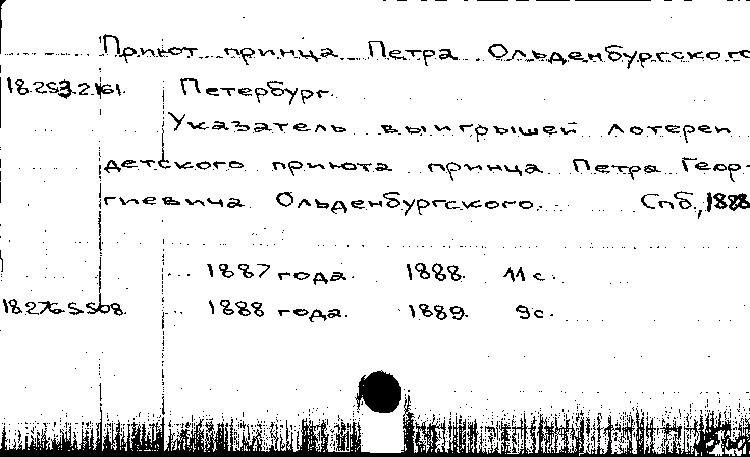 Приют принца Петра Ольденбургского
18.253.2.161. Петербург.
Указатель выигрышей лотереи
детского приюта принца Петра Геор-
гиевича Ольденбургского. Спб., 1888
... 1887 года. 1888. 11 с.
18.276.5.508. ... 1888 года. 1889. 9 с.